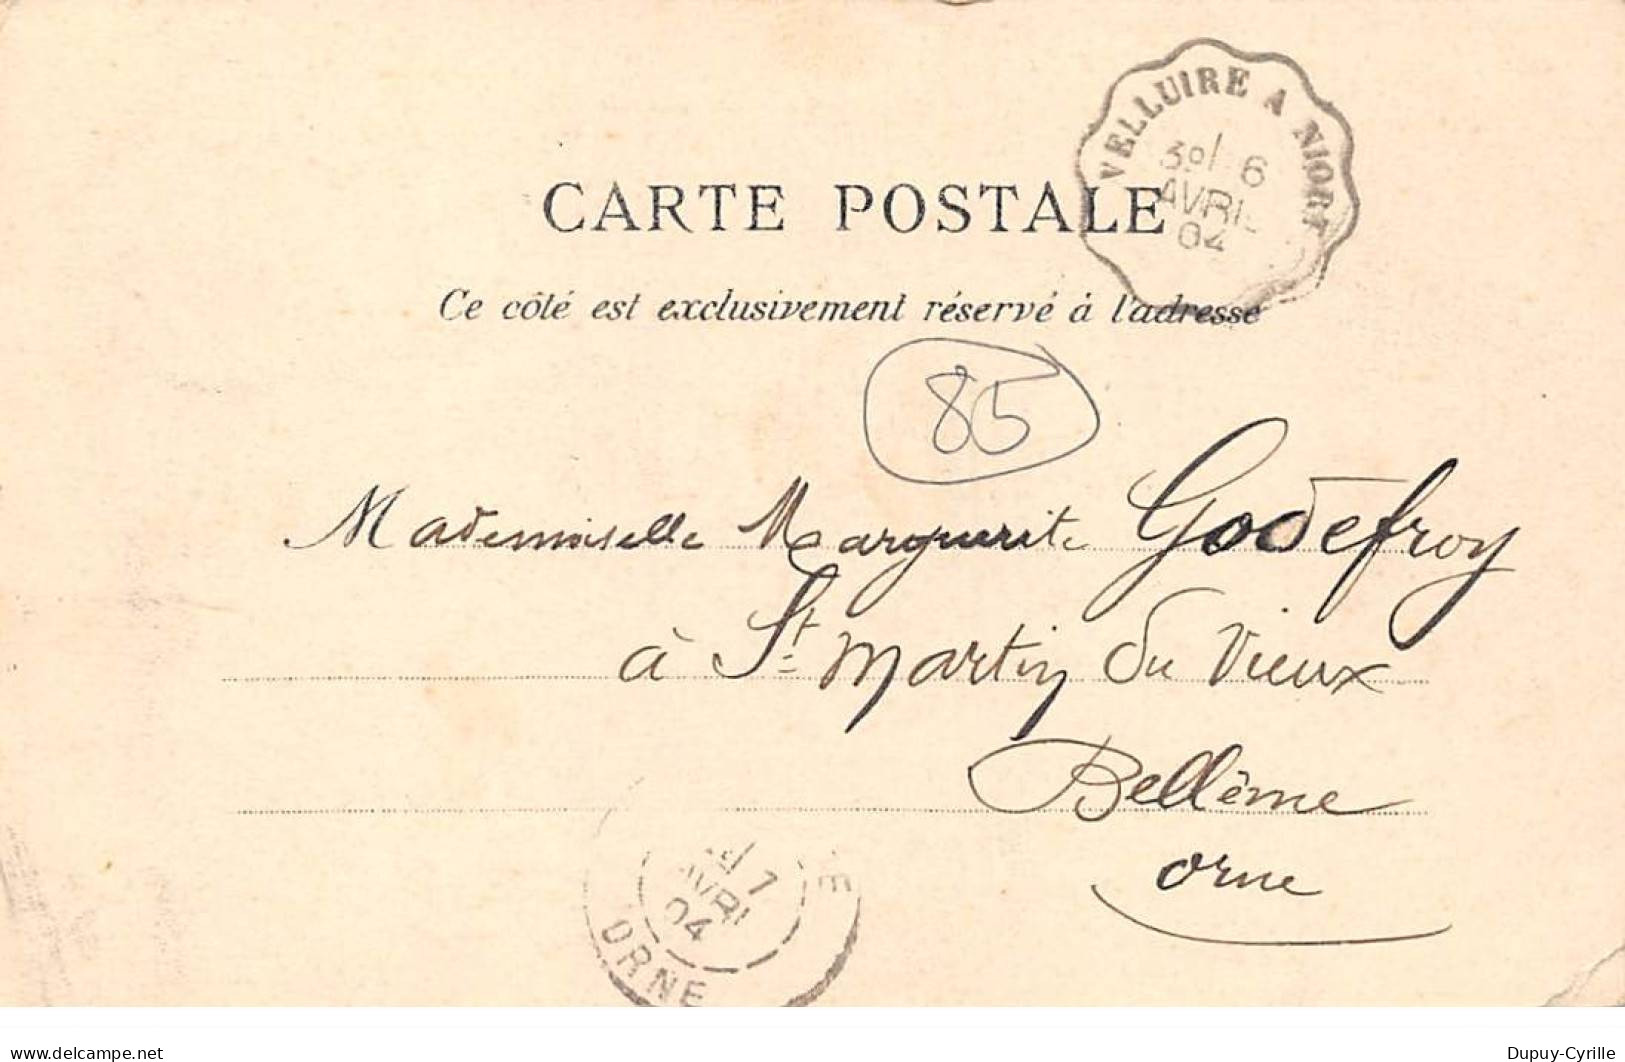 VELLUIRE A NIORT
3º/ 6
AVRIL
04
CARTE POSTALE
Ce côté est exclusivement réservé à l'adresse
85
Mademoiselle Marguerite Godefroy
à St Martin du Vieux
Bellême
Orne
7
AVRIL
04
ORNE
delcampe.net
Dupuy-Cyrille